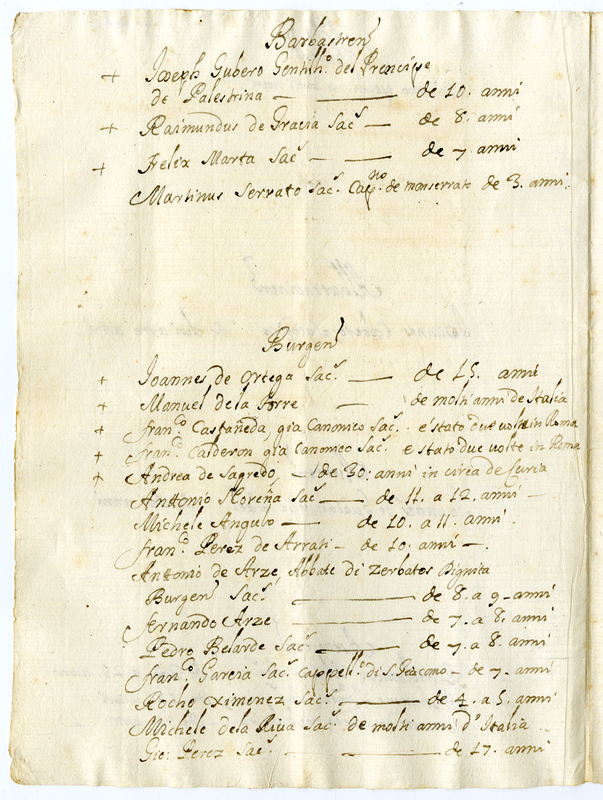 Barbastren
+ Joseph Gubero Gentilh.º del Prencipe
de Palestrina — — de 10. anni
+ Raimundus de Gracia Sac.s — de 8. anni
+ Felix Marta Sac.s — — de 7. anni
Martinus Serrato Sac.s Cap.no de monserrato de 3. anni.
Burgen
+ Joannes de Ortega Sac.s — de 15. anni
+ Manuel de la Torre — de molti anni de Italia
+ fran.co Castañeda gia Canonico Sac.s e stato due volte in Roma
+ fran.co Calderon gia Canonico Sac.s e stato due volte in Roma
+ Andrea de Sagredo — de 30. anni in circa de Curia
Anttonio Sac.s — de 11. a 12. anni —
Michele Angulo — de 10. a 11. anni.
fran.co Perez de Arrati — de 10. anni —.
Anttonio de Arze, Abbate di Zerbatos Dignita
Burgen Sac.s — de 8. a 9. anni
fernando Arze — de 7. a 8. anni
Pedro Belarde Sac.s — de 7. a 8. anni
fran.co Garcia Sac.s Cappell.º di S. Giacomo — de 7. anni
Rocho Ximenez Sac.s — de 4. a 5. anni
Michele de la Riva Sac.s de molti anni d'Italia
Gio: Perez Sac.s — — de 17. anni